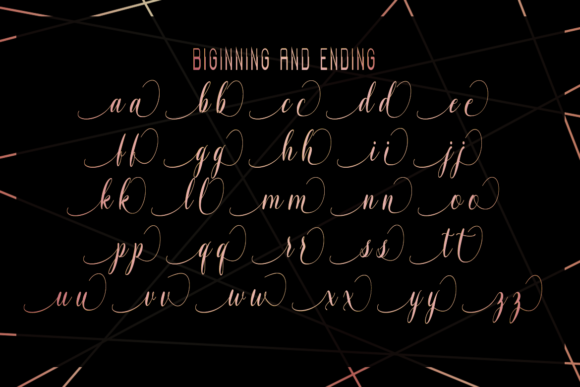 BIGINNING AND ENDING
aa bb cc dd ee
ff gg hh ii jj
kk ll mm nn oo
pp qq rr ss tt
uu vv ww xx yy zz